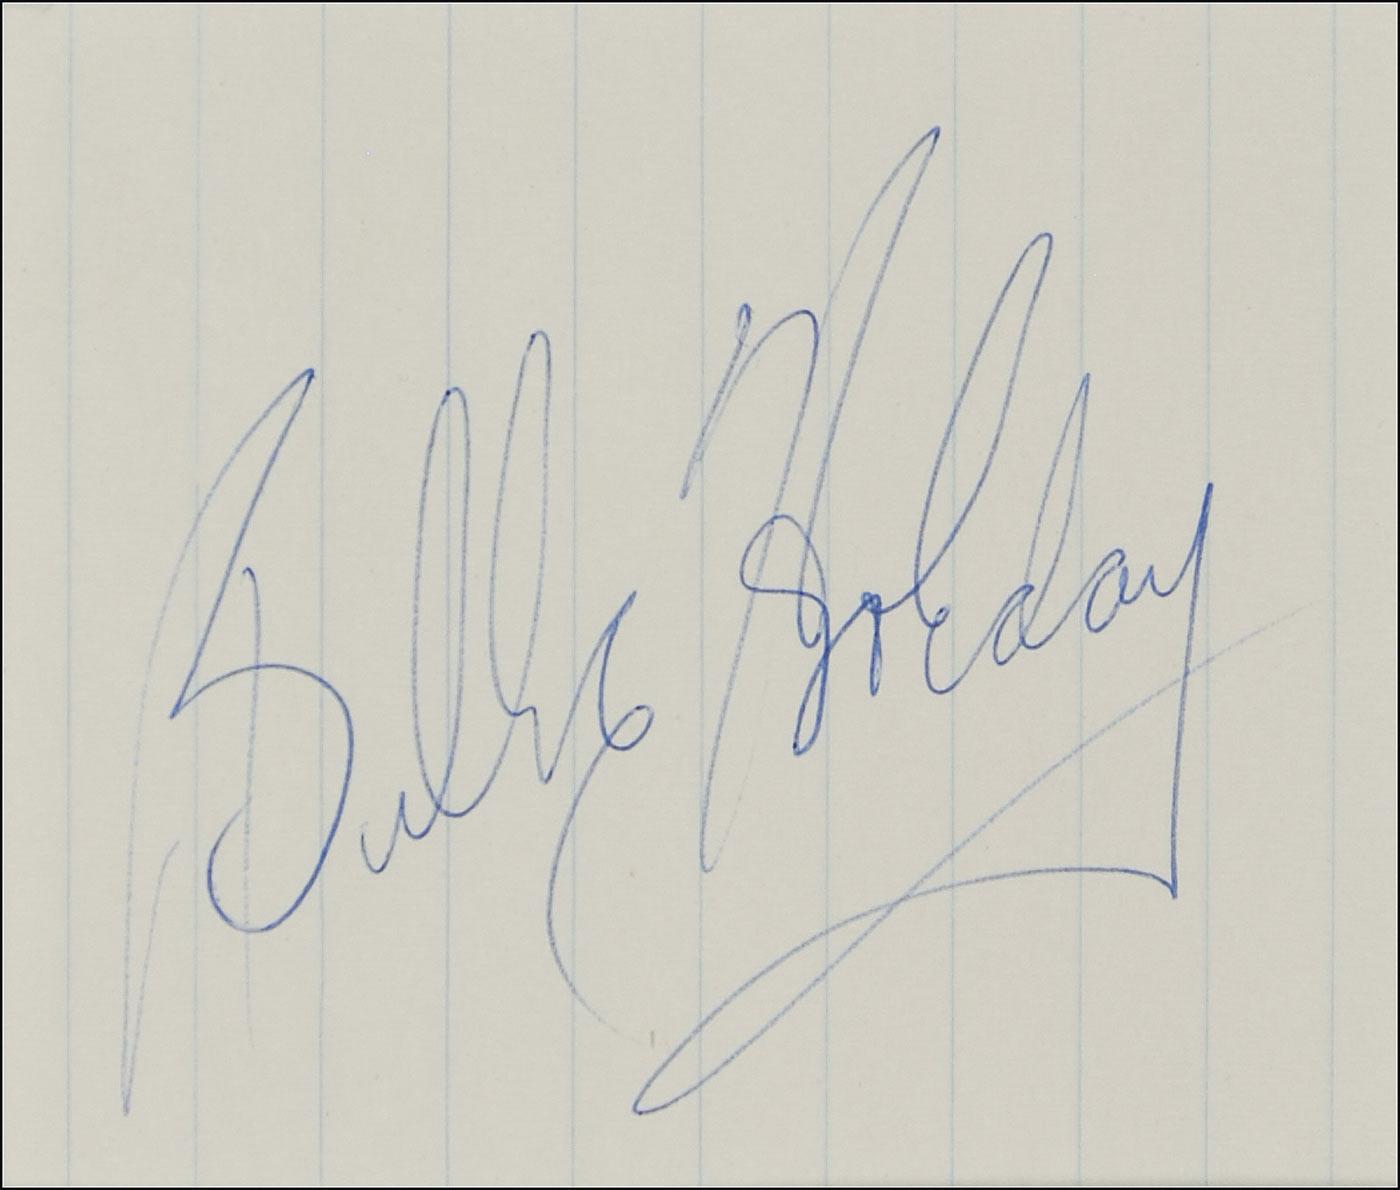 Billie Holiday